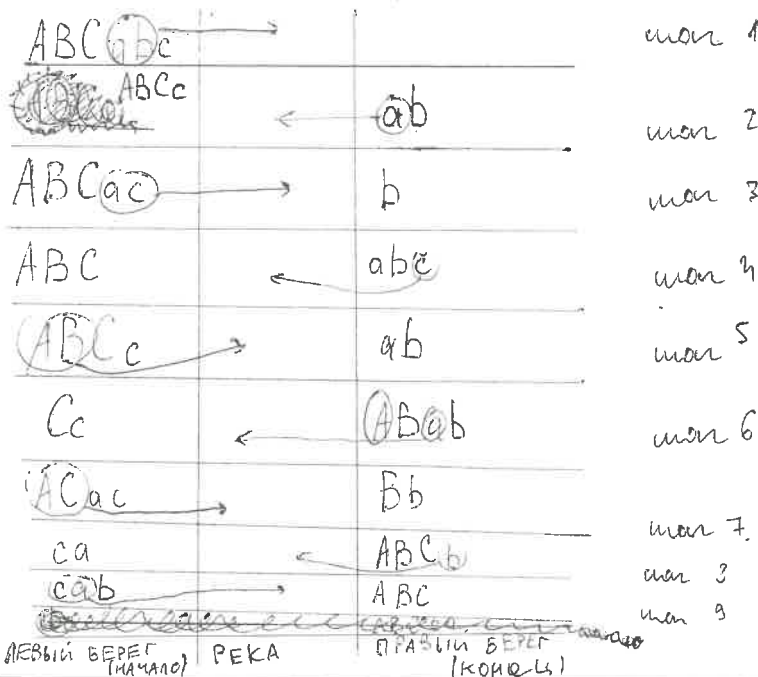 ABC abc шаг 1
ABCc ab шаг 2
ABCac b шаг 3
ABC abc шаг 4
ABCc ab шаг 5
Cc ABab шаг 6
ACac Bb шаг 7.
ca ABCb шаг 8
cab ABC шаг 9
ЛЕВЫЙ БЕРЕГ РЕКА ПРАВЫЙ БЕРЕГ
(НАЧАЛО) (КОНЕЦ)